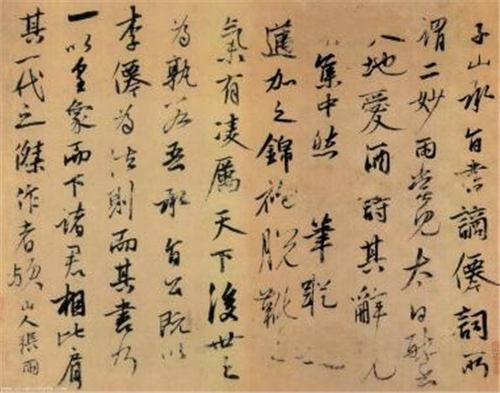 子山承旨書謫僊詞所
謂二妙雨嘗見太白醉書
地愛酒詩其辭
集中然 筆蹤
邁加之錦袍脫靴
氣有凌厲天下後世之
為孰若吾承旨公既以
李僊為法則而其書乃
一以皇象而下諸君相比肩
其一代之傑作者歟 山人張雨